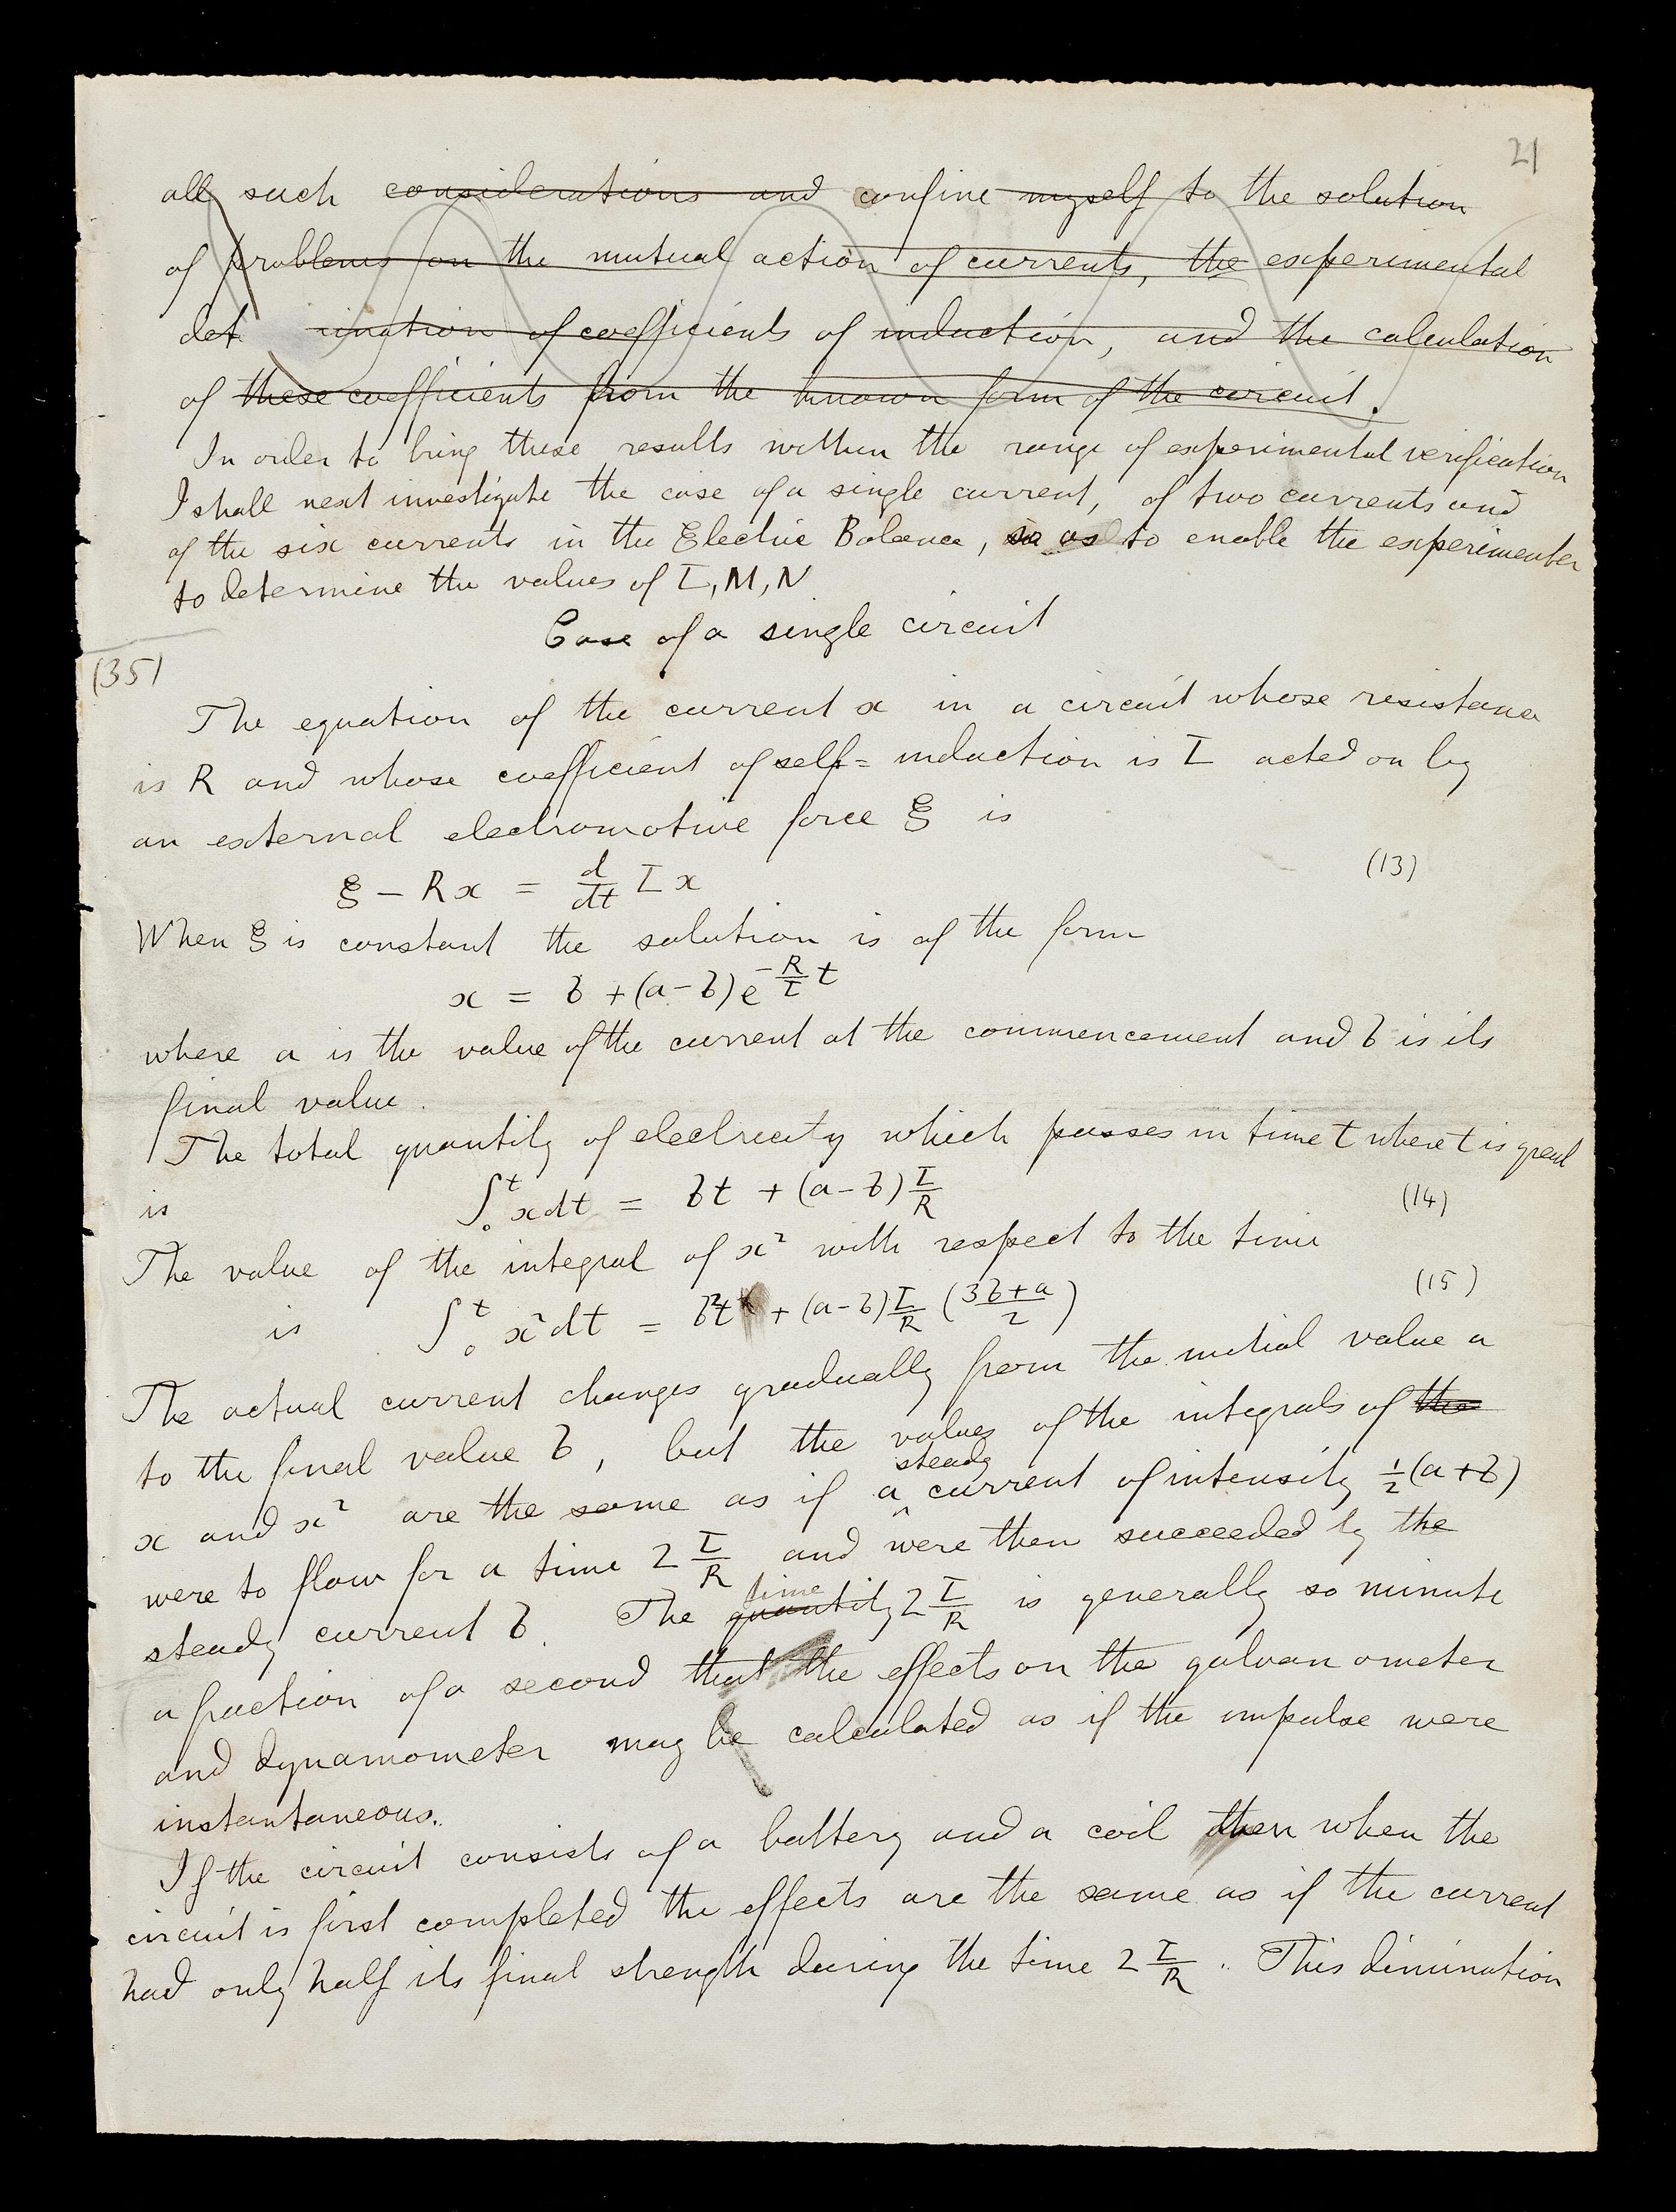 21
all such considerations and confine myself to the solution
of problems on the mutual action of currents, the experimental
det ination of coefficients of induction, and the calculation
of these coefficients from the known form of the circuit.
In order to bring these results within the range of experimental verification
I shall next investigate the case of a single current, of two currents and
of the six currents in the Electric Balance, so as to enable the experimenter
to determine the values of L, M, N
Case of a single circuit
(35)
The equation of the current x in a circuit whose resistance
is R and whose coefficient of self=induction is L acted on by
an external electromotive force ξ is
ξ − Rx = d/dt L x (13)
When ξ is constant the solution is of the form
x = b + (a−b) e^{−R/L t}
where a is the value of the current at the commencement and b is its
final value.
The total quantity of electricity which passes in time t where t is great
is ∫₀ᵗ x dt = bt + (a−b) L/R (14)
The value of the integral of x² with respect to the time
is ∫₀ᵗ x² dt = b²t + (a−b) L/R (3b+a / 2) (15)
The actual current changes gradually from the initial value a
to the final value b, but the values of the integrals of the
x and x² are the same as if a steady current of intensity ½(a+b)
were to flow for a time 2 L/R and were then succeeded by the
steady current b. The quantity time 2 L/R is generally so minute
a fraction of a second that the effects on the galvanometer
and dynamometer may be calculated as if the impulse were
instantaneous.
If the circuit consists of a battery and a coil then when the
circuit is first completed the effects are the same as if the current
had only half its final strength during the time 2 L/R. This diminution